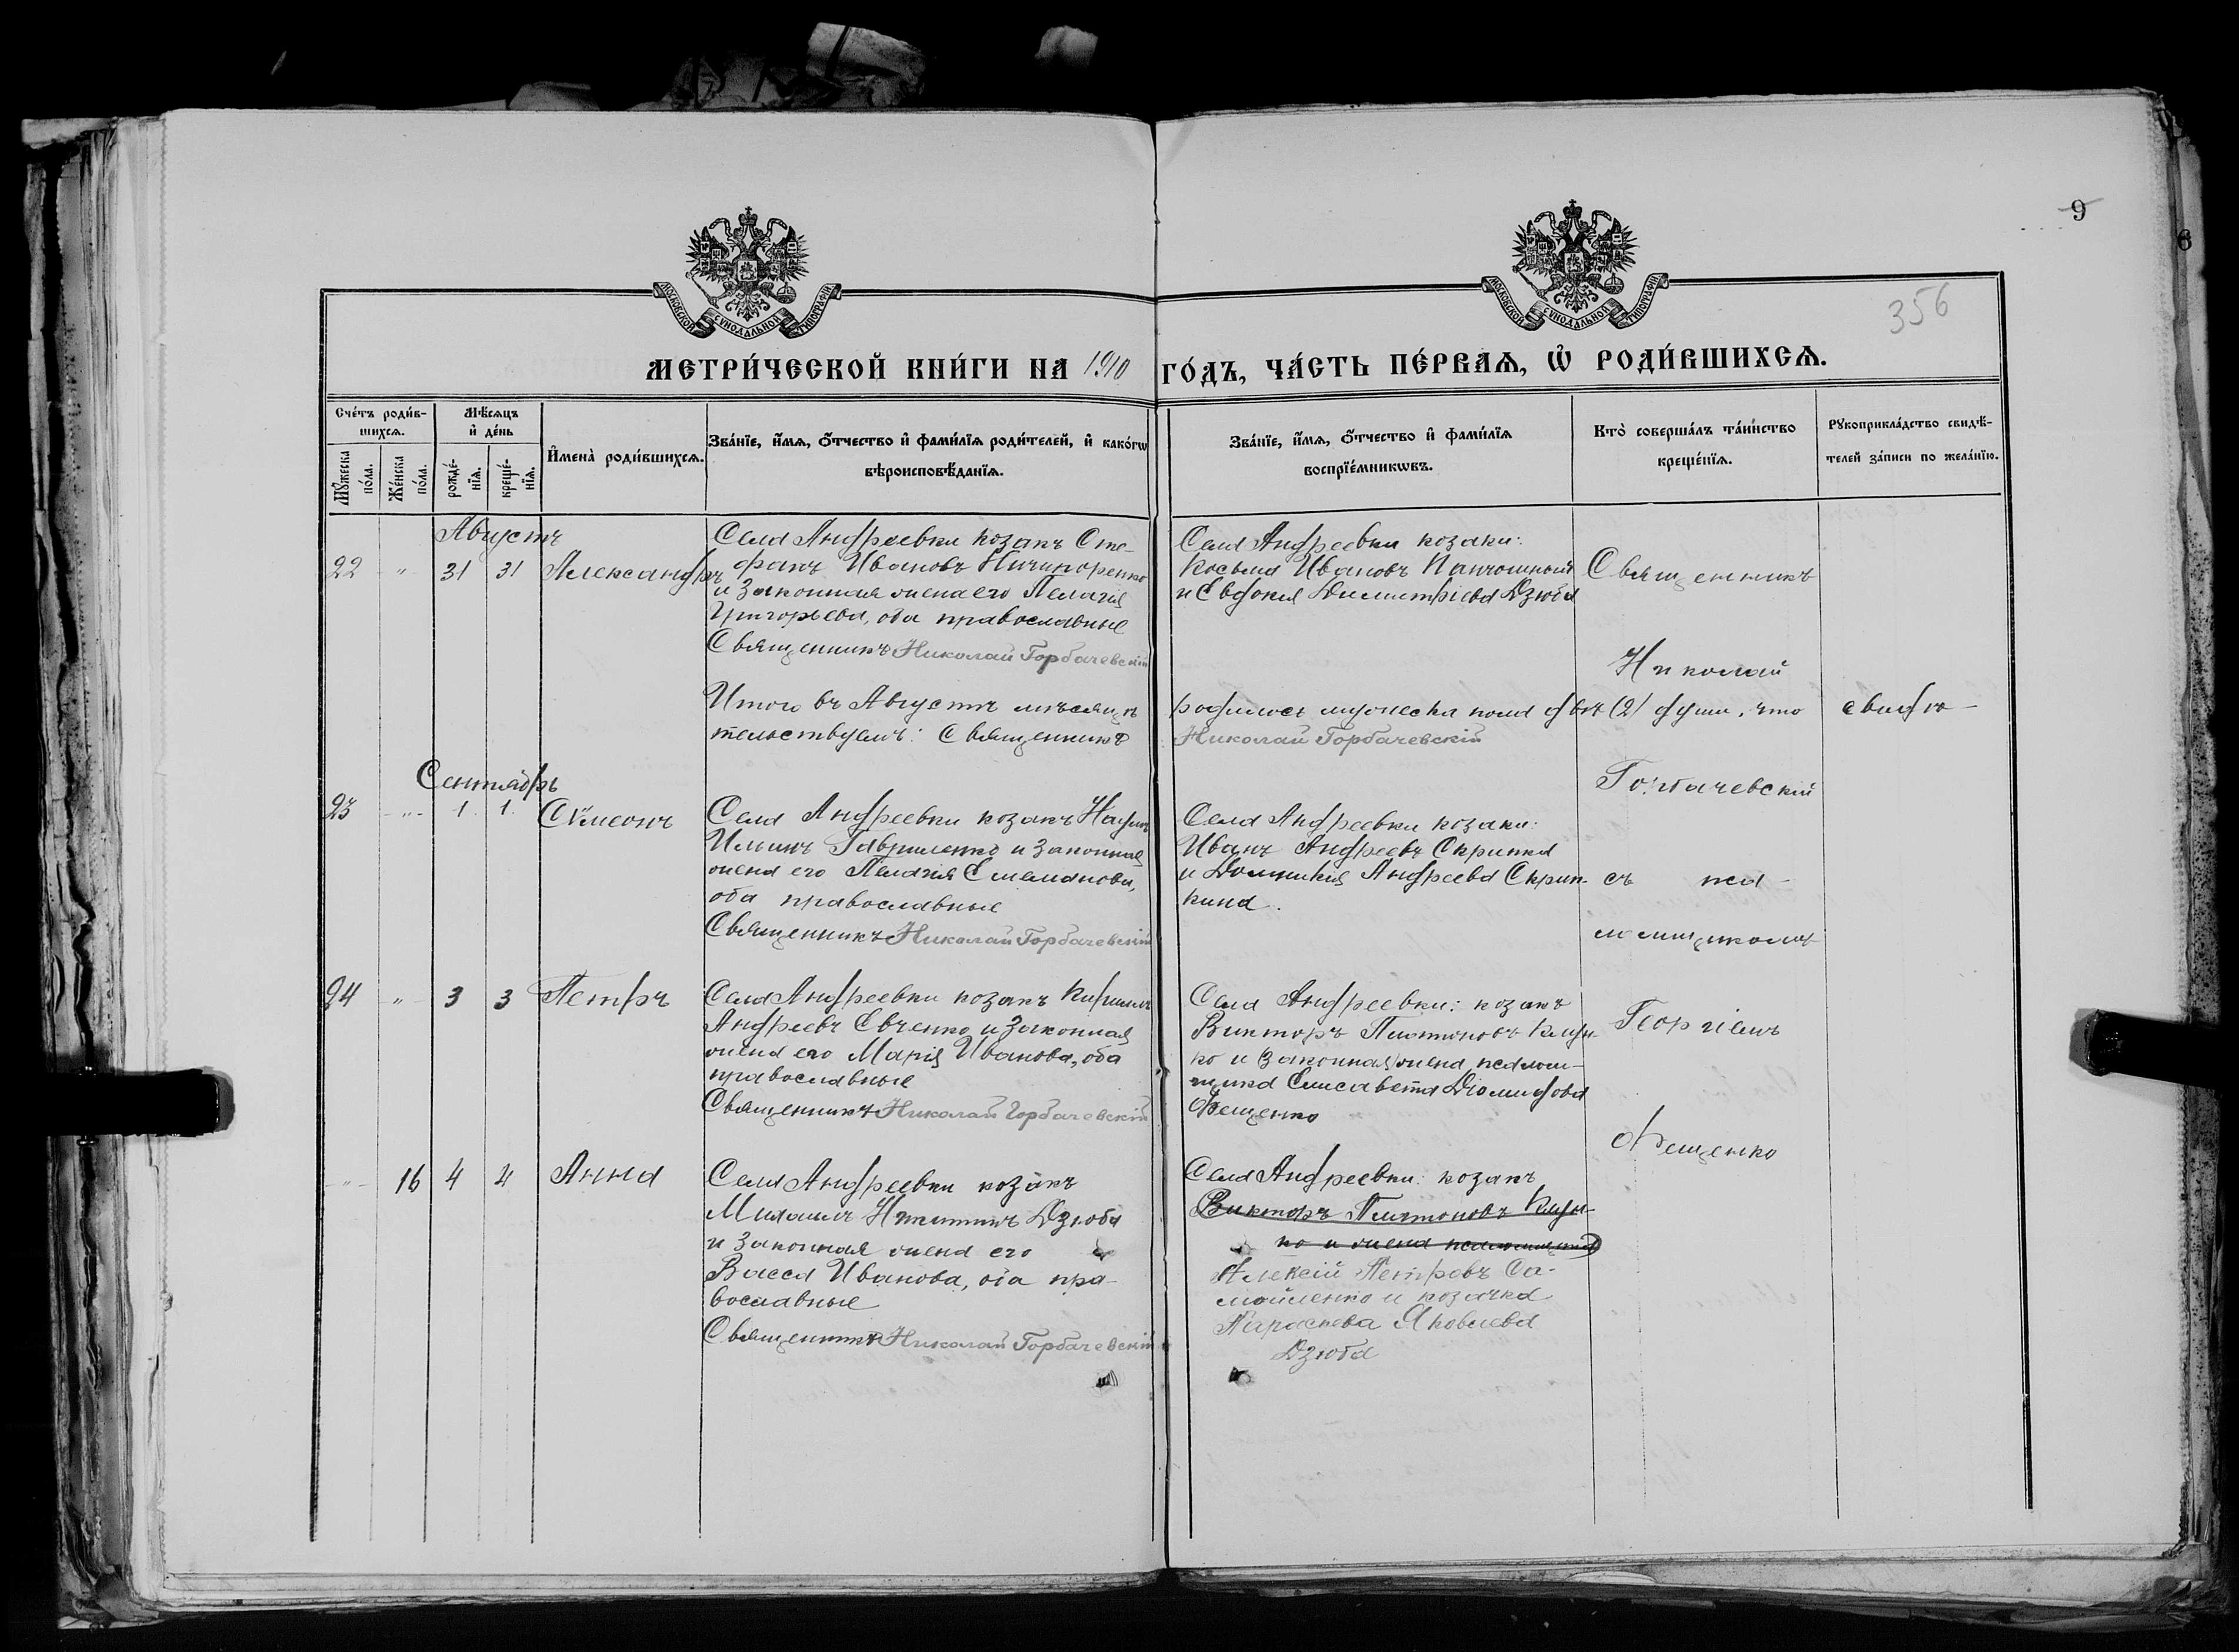 9
6
356
МОСКОВСКОЙ СѴНОДАЛЬНОЙ ТИПОГРАФІИ
МОСКОВСКОЙ СѴНОДАЛЬНОЙ ТИПОГРАФІИ
МЕТРИ́ЧЕСКОЙ КНИ́ГИ НА 1910 ГО́ДЪ, ЧА́СТЬ ПЕ́РВАѦ, Ѽ РОДИ́ВШИХСѦ.
Сче́тъ роди́в-
шихсѧ.
Мѣ́сѧцъ
и҆ де́нь
Мꙋ́жеска
по́ла.
Же́нска
по́ла.
рожде́-
нїѧ.
креще́-
нїѧ.
И҆мена̀ роди́вшихсѧ.
Зва́нїе, и҆́мѧ, ѻ҆́тчество и҆ фами́лїѧ роди́телей, и҆ како́гѡ
вѣроисповѣ́данїѧ.
Зва́нїе, и҆́мѧ, ѻ҆́тчество и҆ фами́лїѧ
воспрїе́мникѡвъ.
Кто̀ соверша́лъ та́инство
креще́нїѧ.
Рꙋкоприкла́дство свидѣ́-
телей за́писи по жела́нїю.
Августъ
22 " 31 31 Александръ
Села Андреевки козакъ Сте-
фанъ Ивановъ Ничипоренко
и законная жена его Пелагія
Григорьева, оба православные
Священникъ Николай Горбачевскій
Села Андреевки козаки:
Косьма Ивановъ
и Евдокія Димитріева Дзюба
Священникъ
Николай
Итого въ Августѣ мѣсяцѣ родилось мужеска пола двѣ (2) души, что свидѣ-
тельствуемъ: Священникъ Николай Горбачевскій
Горбачевскій
Сентябрь
23 " 1 1 Сѵмеонъ
Села Андреевки козакъ Наумъ
Ильинъ Гавриленко и законная
жена его Пелагія Емеліанова,
оба православные
Священникъ Николай Горбачевскій
Села Андреевки козаки:
Иванъ Андреевъ Скрипка
и Домникія Андреева Скрип-
кина.
съ пса-
ломщикомъ
24 " 3 3 Петръ
Села Андреевки козакъ Кириллъ
Андреевъ Евченко и законная
жена его Марія Иванова, оба
православные
Священникъ Николай Горбачевскій
Села Андреевки: козакъ
Викторъ Платоновъ Клун-
ко и законная жена псалом-
щика Елисавета Діомидова
Фещенко
Георгіемъ
Фещенко
" 16 4 4 Анна
Села Андреевки козакъ
Михаилъ Никитинъ Дзюба
и законная жена его
Васса Иванова, оба пра-
вославные
Священникъ Николай Горбачевскій
Села Андреевки: козакъ
Викторъ Платоновъ Клун-
ко и жена псаломщика
Алексій Петровъ Са-
мойленко и козачка
Параскева Яковлева
Дзюба